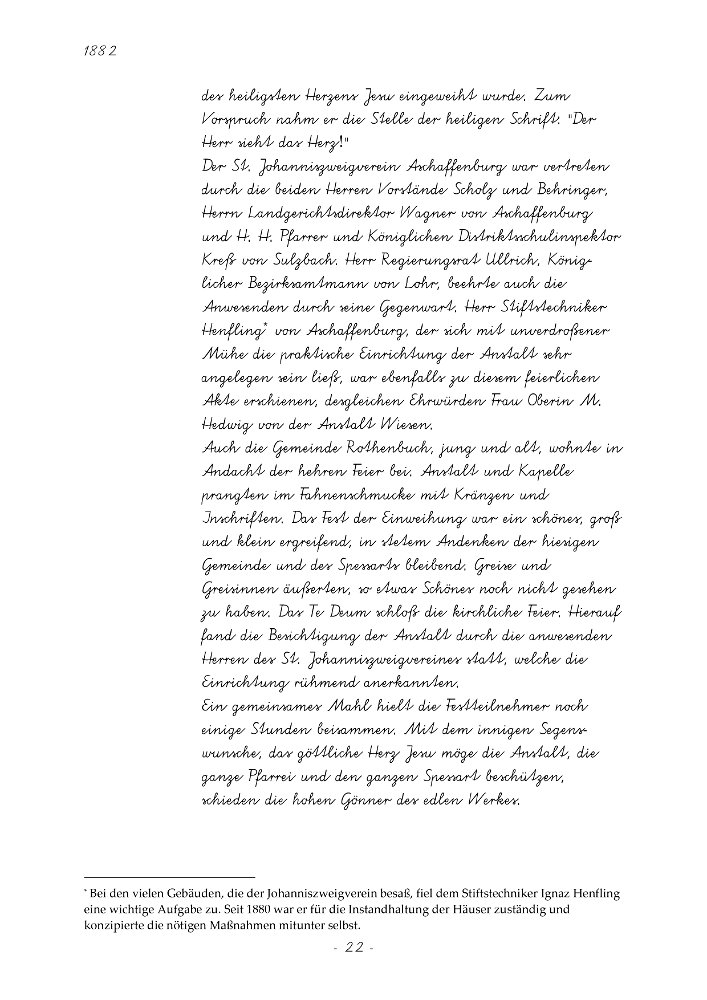 1882
des heiligsten Herzens Jesu eingeweiht wurde. Zum
Vorspruch nahm er die Stelle der heiligen Schrift. "Der
Herr sieht das Herz!"
Der St. Johanniszweigverein Aschaffenburg war vertreten
durch die beiden Herren Vorstände Scholz und Behringer,
Herrn Landgerichtsdirektor Wagner von Aschaffenburg
und H. H. Pfarrer und Königlichen Distriktsschulinspektor
Kreß von Sulzbach. Herr Regierungsrat Ullrich, König-
licher Bezirksamtmann von Lohr, beehrte auch die
Anwesenden durch seine Gegenwart. Herr Stiftstechniker
Henfling* von Aschaffenburg, der sich mit unverdroßener
Mühe die praktische Einrichtung der Anstalt sehr
angelegen sein ließ, war ebenfalls zu diesem feierlichen
Akte erschienen, desgleichen Ehrwürden Frau Oberin M.
Hedwig von der Anstalt Wiesen.
Auch die Gemeinde Rothenbuch, jung und alt, wohnte in
Andacht der hehren Feier bei. Anstalt und Kapelle
prangten im Fahnenschmucke mit Kränzen und
Inschriften. Das Fest der Einweihung war ein schönes, groß
und klein ergreifend, in stetem Andenken der hiesigen
Gemeinde und des Spessarts bleibend. Greise und
Greisinnen äußerten, so etwas Schönes noch nicht gesehen
zu haben. Das Te Deum schloß die kirchliche Feier. Hierauf
fand die Besichtigung der Anstalt durch die anwesenden
Herren des St. Johanniszweigvereines statt, welche die
Einrichtung rühmend anerkannten.
Ein gemeinsames Mahl hielt die Festteilnehmer noch
einige Stunden beisammen. Mit dem innigen Segens-
wunsche, das göttliche Herz Jesu möge die Anstalt, die
ganze Pfarrei und den ganzen Spessart beschützen,
schieden die hohen Gönner des edlen Werkes.
* Bei den vielen Gebäuden, die der Johanniszweigverein besaß, fiel dem Stiftstechniker Ignaz Henfling
eine wichtige Aufgabe zu. Seit 1880 war er für die Instandhaltung der Häuser zuständig und
konzipierte die nötigen Maßnahmen mitunter selbst.
- 22 -